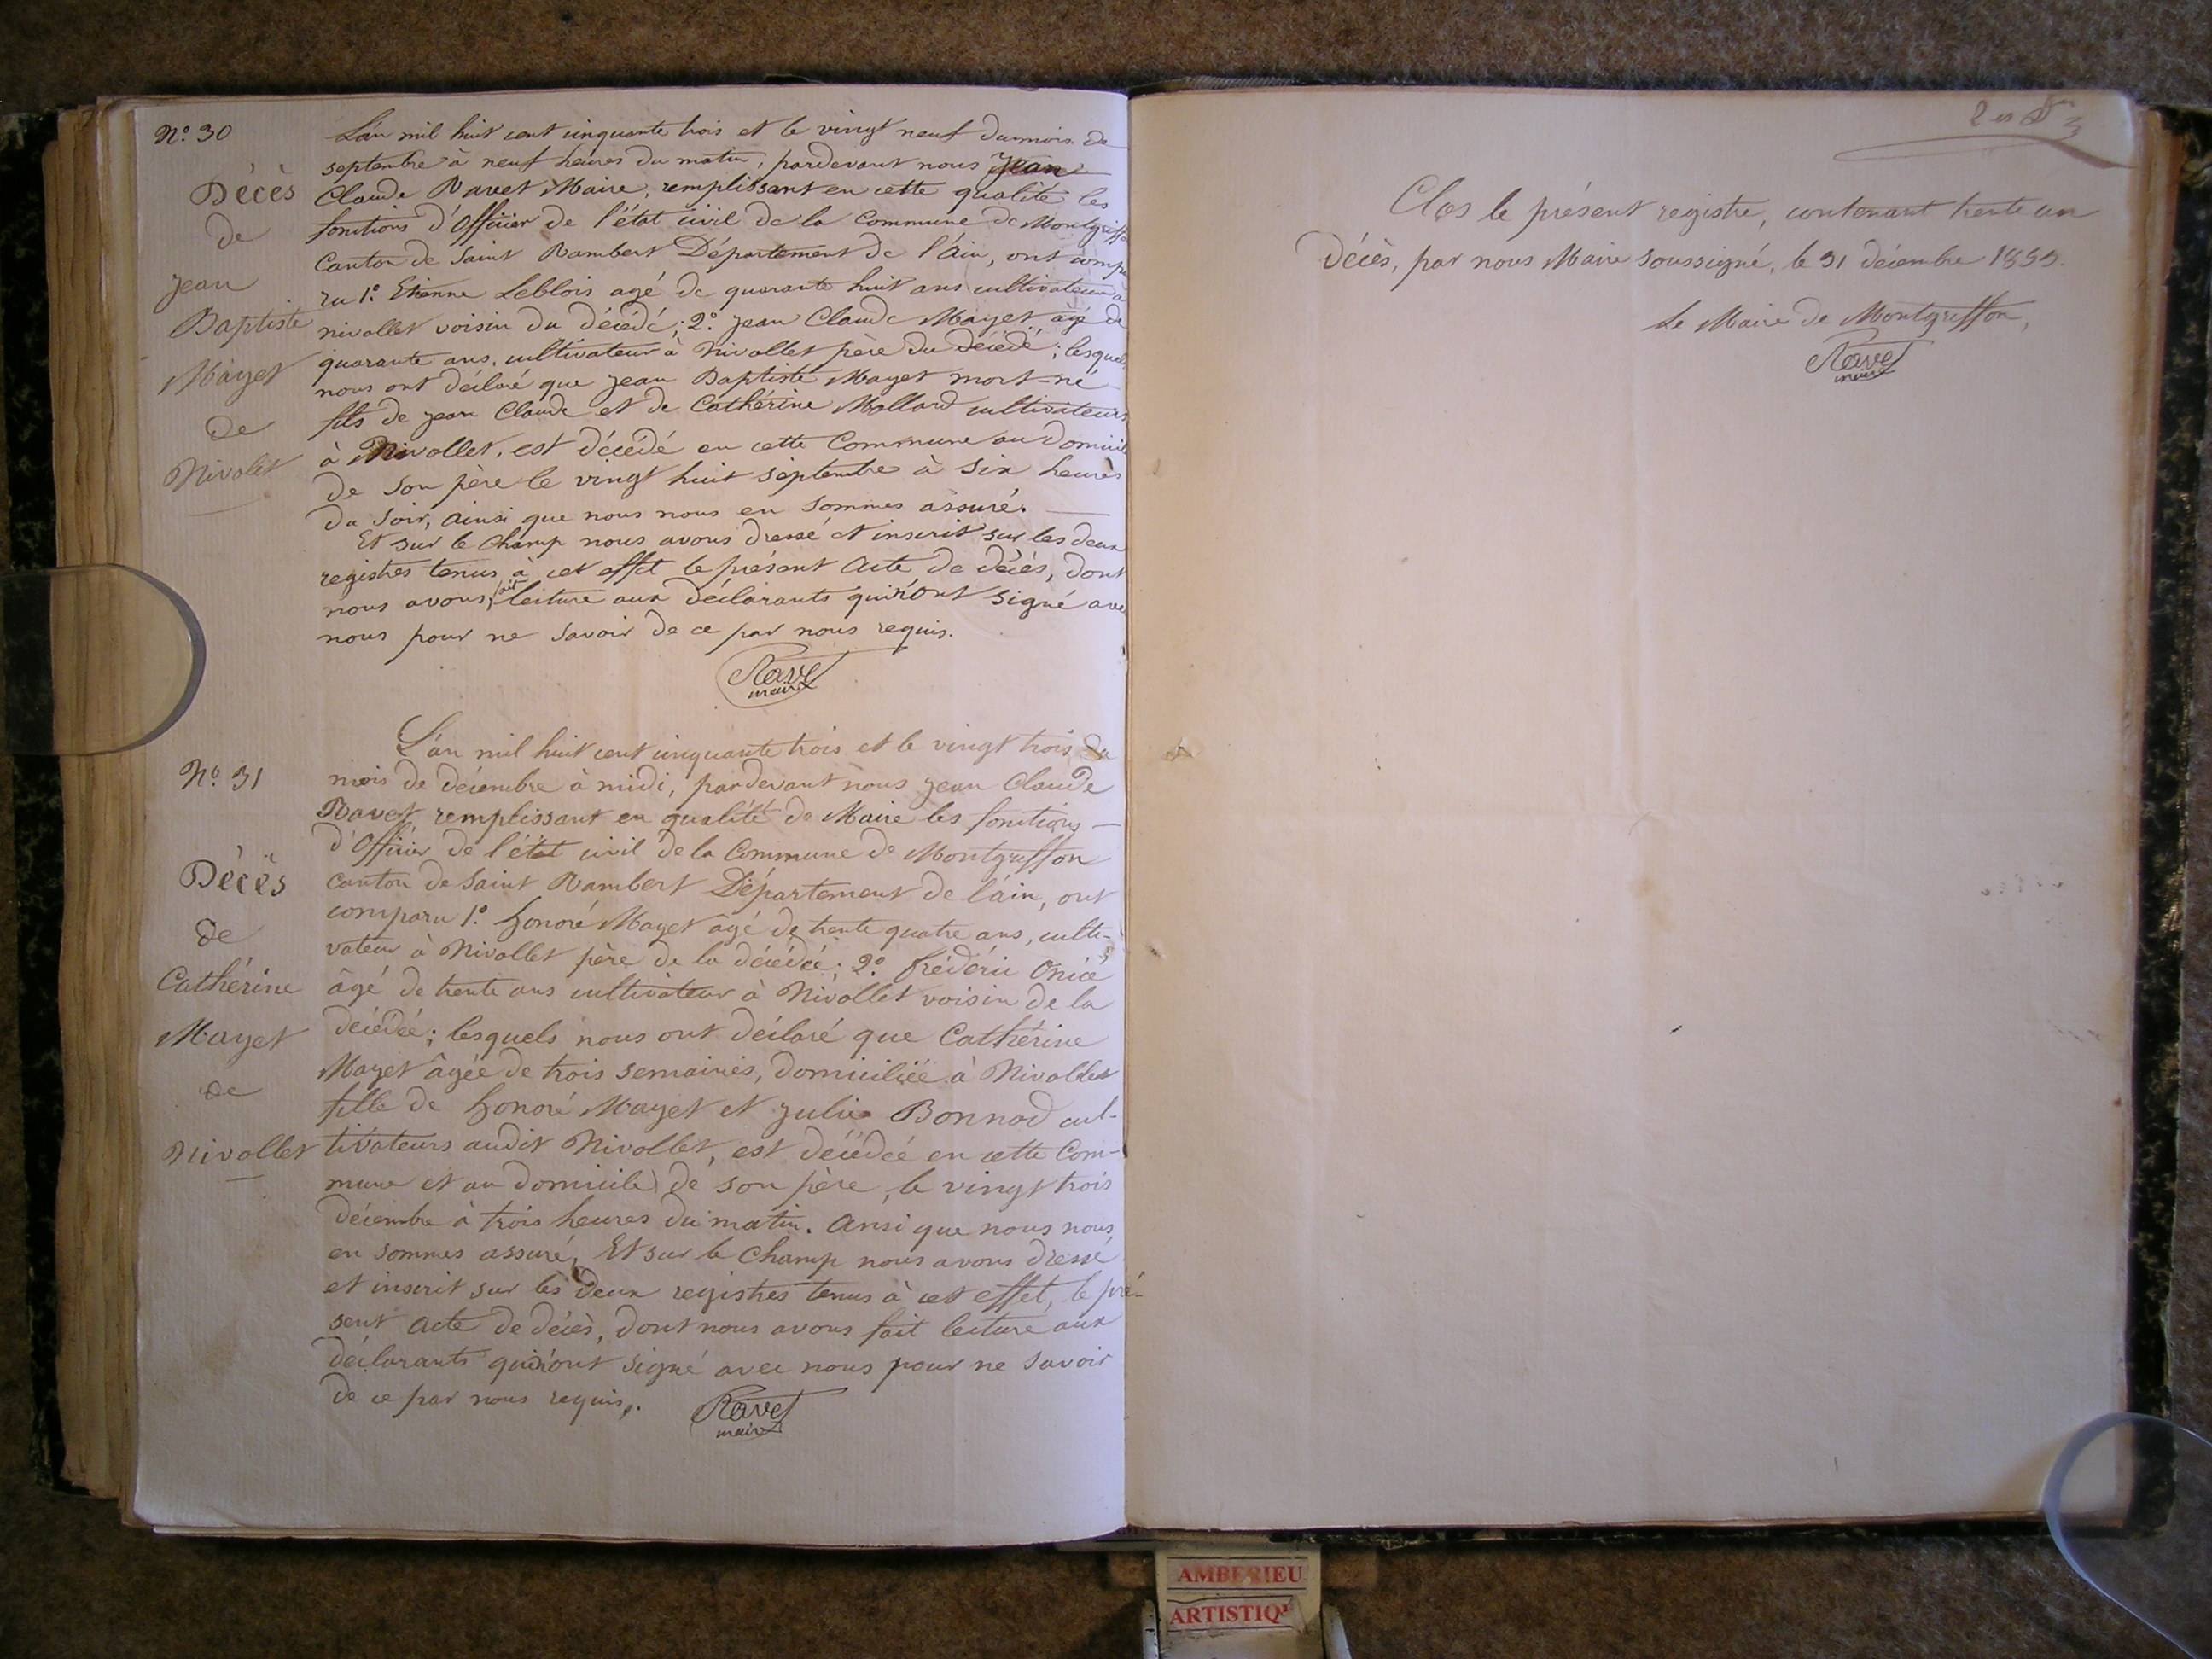 N.º 30
Décès
de
Jean
Baptiste
Mayet
de
Nivolet
L'an mil huit cent cinquante trois et le vingt neuf du mois de
septembre à neuf heures du matin, pardevant nous Jean
Claude Ravet Maire, remplissant en cette qualité les
fonctions d'Officier de l'état civil de la Commune de Montgriffon
Canton de Saint Rambert Département de l'Ain, ont compa
ru 1.º Etienne Leblois agé de quarante huit ans cultivateur à
nivollet voisin du décédé; 2.º Jean Claude Mayet agé de
quarante ans, cultivateur à Nivollet père du décédé; lesquels
nous ont déclaré que Jean Baptiste Mayet mort-né
fils de Jean Claude et de Cathérine Mollard cultivateurs
à Nivollet, est décédé en cette Commune au domicile
de son père le vingt huit septembre à six heures
du soir, ainsi que nous nous en sommes assuré.
Et sur le champ nous avons dressé et inscrit sur les deux
registres tenus à cet effet le présent acte de décès, dont
nous avons fait lecture aux déclarants qui n'ont signé avec
nous pour ne savoir de ce par nous requis.
Ravet
maire
N.º 31
Décès
de
Cathérine
Mayet
de
Nivollet
L'an mil huit cent cinquante trois et le vingt trois du
mois de décembre à midi, pardevant nous Jean Claude
Ravet remplissant en qualité de Maire les fonctions
d'Officier de l'état civil de la Commune de Montgriffon
canton de Saint Rambert Département de l'ain, ont
comparu 1.º honoré Mayet âgé de trente quatre ans, culti-
vateur à Nivollet père de la décédée; 2.º frédéric
âgé de trente ans cultivateur à Nivollet voisin de la
décédée; lesquels nous ont déclaré que Cathérine
Mayet âgée de trois semaines, domiciliée à Nivollet
fille de honoré Mayet et Julie Bonnod cul-
tivateurs audit Nivollet, est décédée en cette Com-
mune et au domicile de son père, le vingt trois
décembre à trois heures du matin. Ansi que nous nous
en sommes assuré, Et sur le champ nous avons dressé
et inscrit sur les deux registres tenus à cet effet, le pré-
sent acte de décès, dont nous avons fait lecture aux
déclarants qui n'ont signé avec nous pour ne savoir
de ce par nous requis.
Ravet
maire
Clos le présent registre, contenant trente un
décès, par nous Maire soussigné, le 31 décembre 1853.
Le Maire de Montgriffon,
Ravet
maire
AMBERIEU
ARTISTIQ